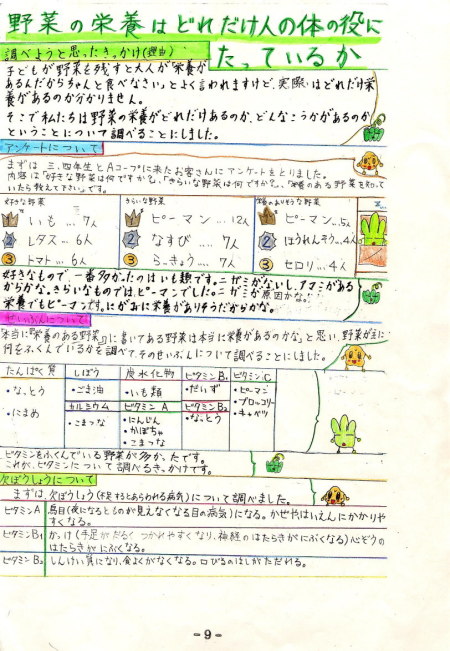 野菜の栄養はどれだけ人の体の役に
たっているか
調べようと思ったきっかけ(理由)
子どもが野菜を残すと大人が「栄養が
あるんだからちゃんと食べなさい」とよく言われますけど、実際はどれだけ栄
養があるのか分かりません。
そこで私たちは野菜の栄養がどれだけあるのか、どんなこうかがあるのか
ということについて調べることにしました。
アンケートについて
まずは三、四年生とAコープに来たお客さんにアンケートをとりました。
内容は「好きな野菜は何ですか?」、「きらいな野菜は何ですか?」、「栄養のある野菜を知って
いたら教えて下さい」です。
好きな野菜 きらいな野菜 栄養のありそうな野菜
いも…7人 ピーマン…12人 ピーマン…5人
2 レタス…6人 2 なすび……7人 2 ほうれんそう…4人
3 トマト…6人 3 らっきょう…7人 3 セロリ…4人
好きなもので一番多かったのはいも類です。ニガミがないし、アマミがある
からかな。きらいなものでは、ピーマンでした。ニガミが原因かな。
栄養でもピーマンです。にがみに栄養がありそうだからかな。
せいぶんについて
「本当に『栄養のある野菜』に書いてある野菜は本当に栄養があるのかな」と思い、野菜が主に
何をふくんでいるかを調べて、そのせいぶんについて調べることにしました。
たんぱく質 しぼう 炭水化物 ビタミンB1 ビタミンC
・なっとう ・ごま油 ・いも類 ・だいず ・ピーマン
・にまめ カルシウム ビタミンA ビタミンB2 ・ブロッコリー
・こまつな ・にんじん ・なっとう ・キャベツ
・かぼちゃ
・こまつな
ビタミンをふくんでいる野菜が多かったです。
これが、ビタミンについて調べるきっかけです。
欠ぼうしょうについて
まずは、欠ぼうしょう(不足するとあらわれる病気)について調べました。
ビタミンA 鳥目(夜になるとものが見えなくなる目の病気)になる。かぜやはいえんにかかりや
すくなる。
ビタミンB1 かっけ(手足がだるくつかれやすくなり、神経のはたらきがにぶくなる)心ぞうの
はたらきがにぶくなる。
ビタミンB2 しんけい質になり、食よくがなくなる。口びるのはしがただれる。
-9-